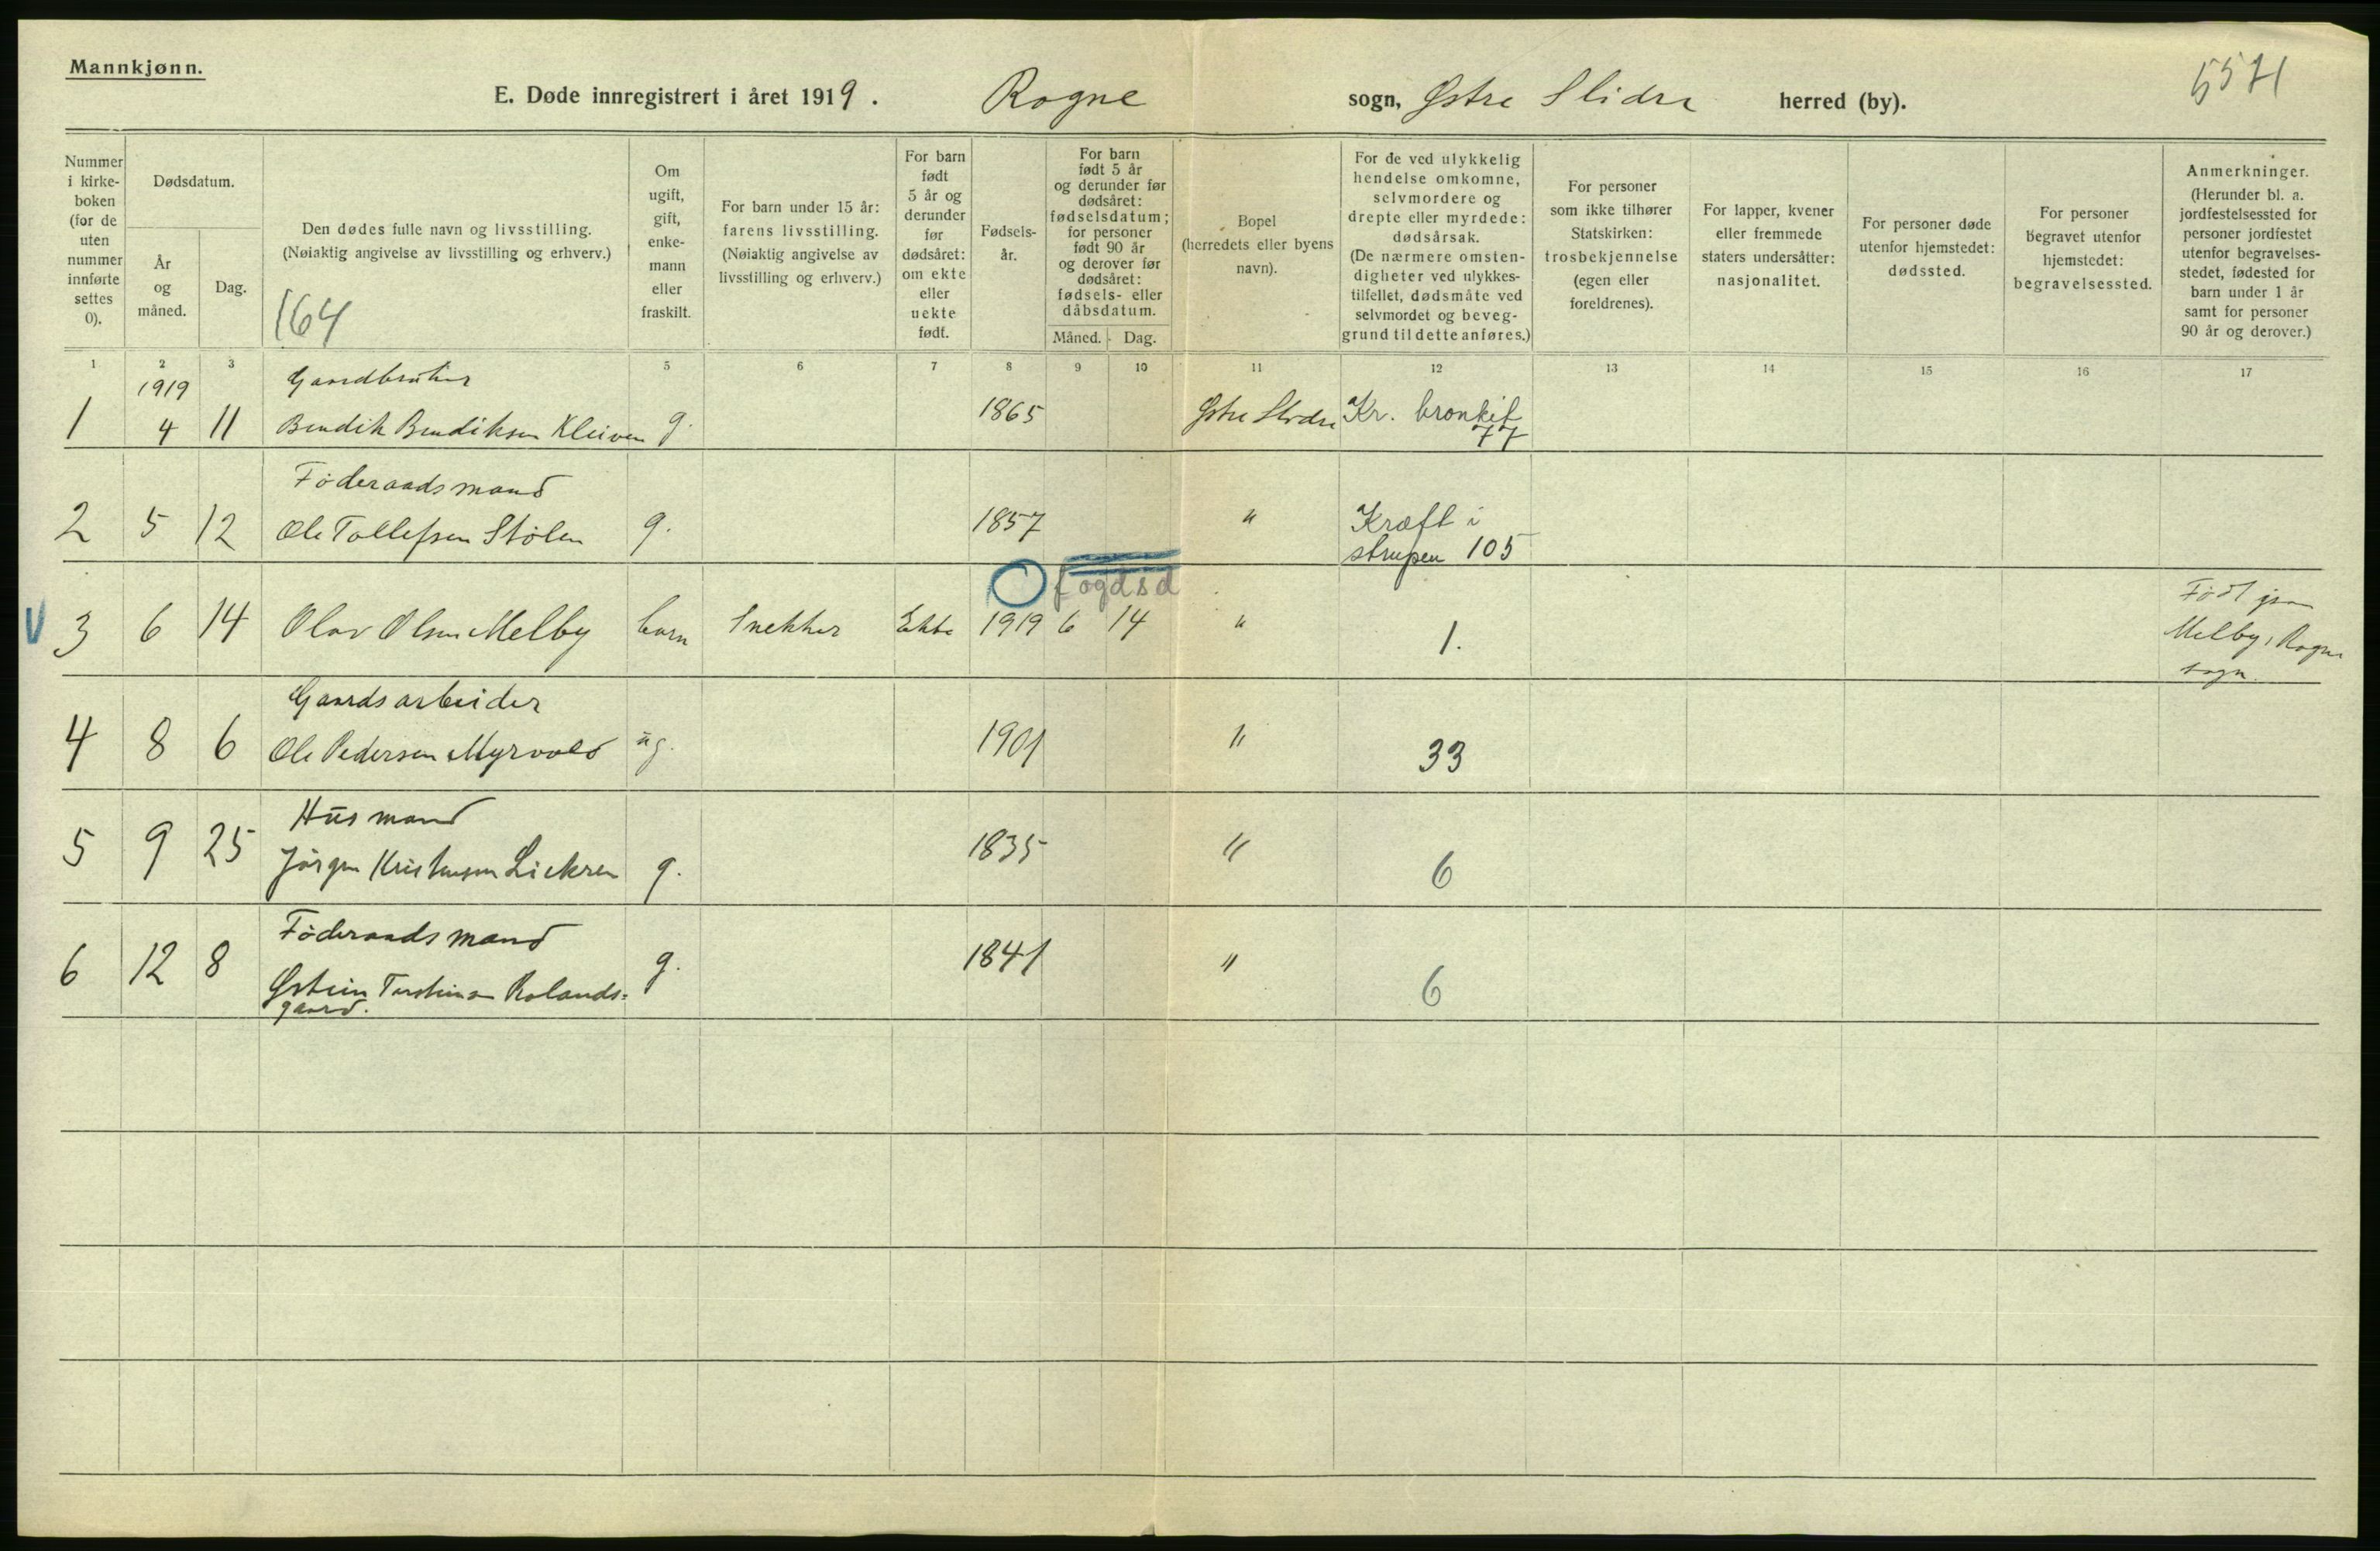 Mannkjønn.
E. Døde innregistrert i året 1919. Rogne sogn, Østre Slidre herred (by).
5571
Nummer i kirke- boken (for de uten nummer innførte settes 0).
Dødsdatum.
År og måned.
Dag.
Den dødes fulle navn og livsstilling.
(Nøiaktig angivelse av livsstilling og erhverv.)
164
Om ugift, gift, enke- mann eller fraskilt.
For barn under 15 år: farens livsstilling.
(Nøiaktig angivelse av livsstilling og erhverv.)
For barn født 5 år og derunder før dødsåret: om ekte eller uekte født.
Fødsels- år.
For barn født 5 år og derunder før dødsåret: fødselsdatum; for personer født 90 år og derover før dødsåret: fødsels- eller dåbsdatum.
Måned. Dag.
Bopel (herredets eller byens navn).
For de ved ulykkelig hendelse omkomne, selvmordere og drepte eller myrdede: dødsårsak.
(De nærmere omsten- digheter ved ulykkes- tilfellet, dødsmåte ved selvmordet og beveg- grund til dette anføres.)
For personer som ikke tilhører Statskirken: trosbekjennelse (egen eller foreldrenes).
For lapper, kvener eller fremmede staters undersåtter: nasjonalitet.
For personer døde utenfor hjemstedet: dødssted.
For personer begravet utenfor hjemstedet: begravelsessted.
Anmerkninger.
(Herunder bl. a. jordfestelsessted for personer jordfestet utenfor begravelses- stedet, fødested for barn under 1 år samt for personer 90 år og derover.)
1 2 3 5 6 7 8 9 10 11 12 13 14 15 16 17
1919 Gaardbruker
1 4 11 Bendik Bendiksen Kleiven g. 1865 Østre Slidre Kr. bronkit
77
Föderaadsmand
2 5 12 Ole Tollefsen Stölen g. 1857 " Kræft i
strupen 105
fogdsd
V 3 6 14 Olav Olsen Melby barn Snekker Ekte 1919 6 14 " 1.
Född
Melby, Rogne
sogn.
Gaardsarbeider
4 8 6 Ole Pedersen Myrvold ug. 1901 " 33
Husmand
5 9 25 Jörgen Kristensen g. 1835 " 6
Föderaadsmand
6 12 8 Østein Torsteinsen Rolands= g. 1841 " 6
gaard.